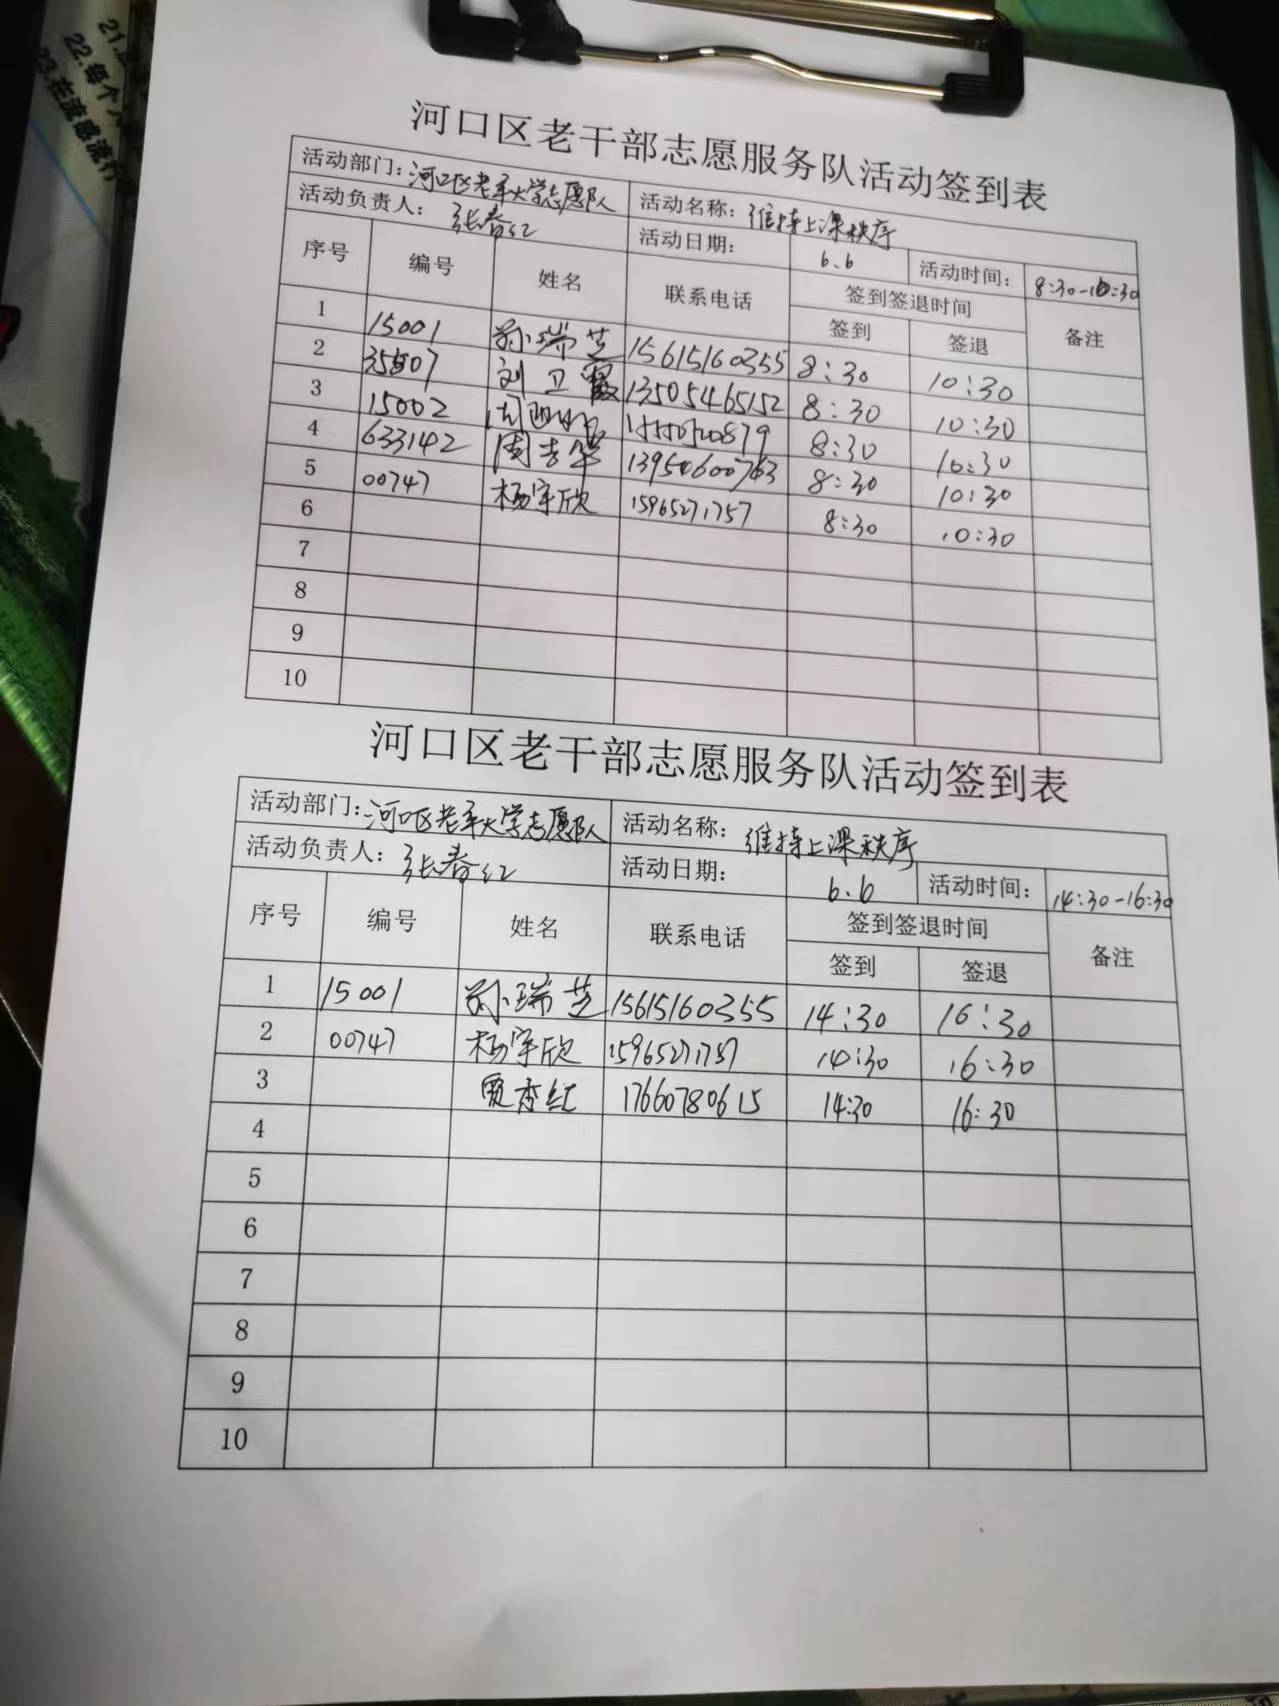 21.
22.每个人
23.在流感流行
河口区老干部志愿服务队活动签到表
活动部门：河口区老年大学志愿队 活动名称：维持上课秩序
活动负责人：张春红 活动日期： 6.6 活动时间： 8:30-10:30
序号 编号 姓名 联系电话 签到签退时间 备注
签到 签退
1 15001 孙瑞芝 15615160355 8:30 10:30
2 35807 刘卫霞 13505465152 8:30 10:30
3 15002 8:30 10:30
4 633142 周吉华 8:30 10:30
5 00747 杨宇欣 15965271757 8:30 10:30
6
7
8
9
10
河口区老干部志愿服务队活动签到表
活动部门：河口区老年大学志愿队 活动名称：维持上课秩序
活动负责人：张春红 活动日期： 6.6 活动时间： 14:30-16:30
序号 编号 姓名 联系电话 签到签退时间 备注
签到 签退
1 15001 孙瑞芝 15615160355 14:30 16:30
2 00747 杨宇欣 15965271757 14:30 16:30
3 贾香红 17660780615 14:30 16:30
4
5
6
7
8
9
10